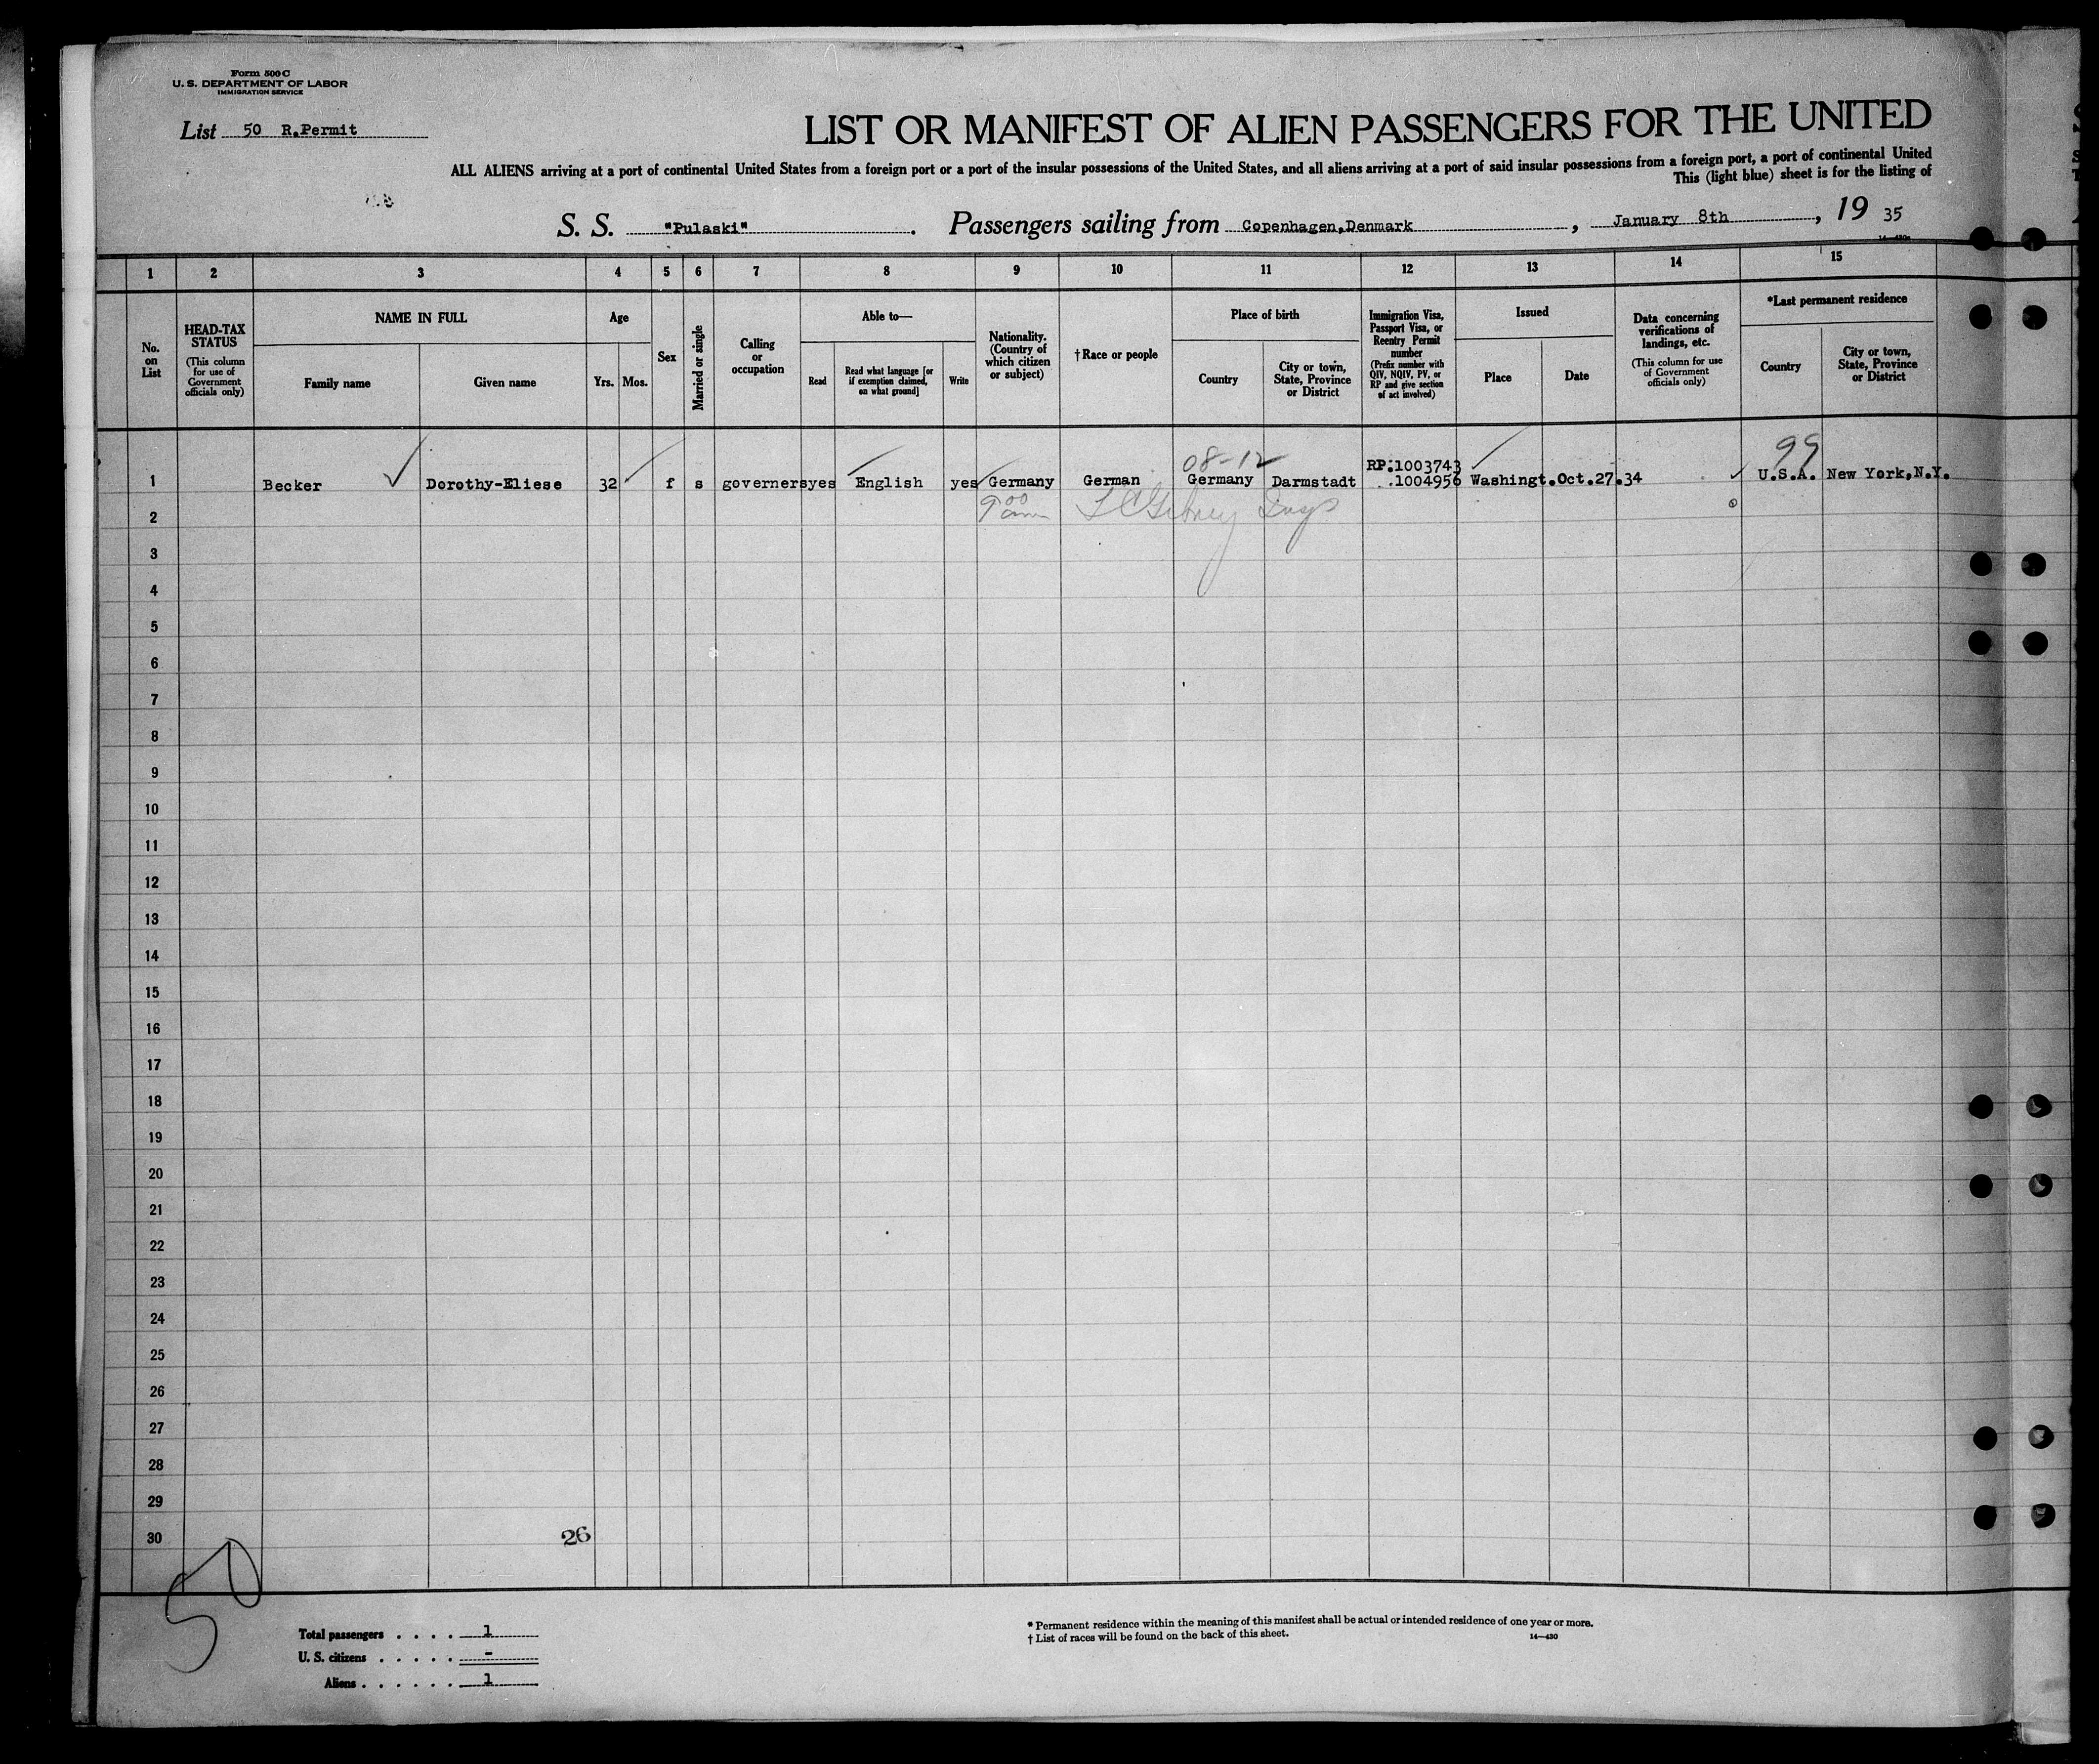 Form 500 C
U. S. DEPARTMENT OF LABOR
IMMIGRATION SERVICE
List 50 R.Permit
LIST OR MANIFEST OF ALIEN PASSENGERS FOR THE UNITED
ALL ALIENS arriving at a port of continental United States from a foreign port or a port of the insular possessions of the United States, and all aliens arriving at a port of said insular possessions from a foreign port, a port of continental United
This (light blue) sheet is for the listing of
S. S. "Pulaski". Passengers sailing from Copenhagen,Denmark, January 8th, 19 35
1 2 3 4 5 6 7 8 9 10 11 12 13 14 15
No. on List
HEAD-TAX STATUS
(This column for use of Government officials only)
NAME IN FULL
Family name
Given name
Age
Yrs. Mos.
Sex
Married or single
Calling or occupation
Able to—
Read
Read what language [or if exemption claimed, on what ground]
Write
Nationality. (Country of which citizen or subject)
†Race or people
Place of birth
Country
City or town, State, Province or District
Immigration Visa, Passport Visa, or Reentry Permit number
(Prefix number with QIV, NQIV, PV, or RP and give section of act involved)
Issued
Place
Date
Data concerning verifications of landings, etc.
(This column for use of Government officials only)
*Last permanent residence
Country
City or town, State, Province or District
08-12
99
RP.1003743
1 Becker Dorothy-Eliese 32 f s governers yes English yes Germany German Germany Darmstadt .1004956 Washingt. Oct.27.34 U.S.A. New York,N.Y.
9 00 am
2
3
4
5
6
7
8
9
10
11
12
13
14
15
16
17
18
19
20
21
22
23
24
25
26
27
28
29
30
26
50
Total passengers . . . . 1
U. S. citizens . . . . . -
Aliens . . . . . . 1
* Permanent residence within the meaning of this manifest shall be actual or intended residence of one year or more.
† List of races will be found on the back of this sheet.
14—430